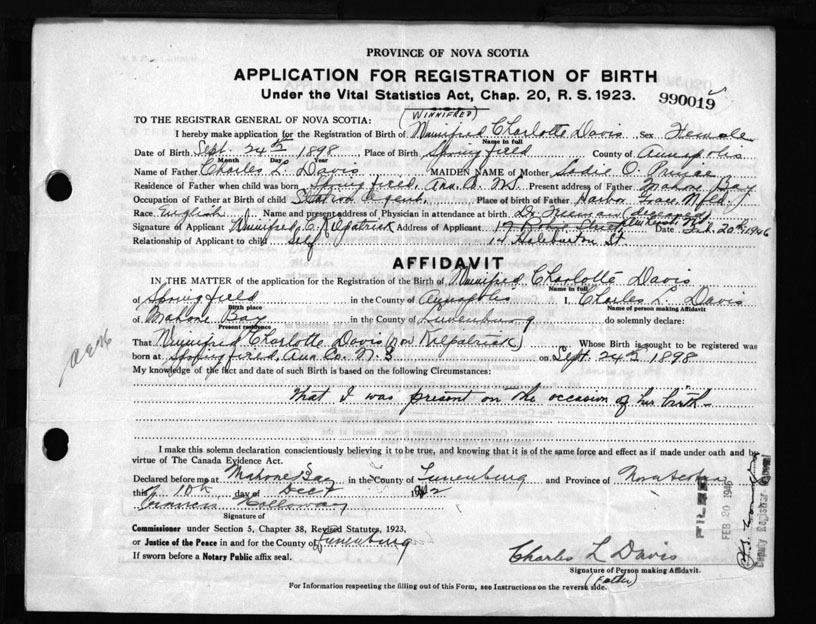 PROVINCE OF NOVA SCOTIA
APPLICATION FOR REGISTRATION OF BIRTH
Under the Vital Statistics Act, Chap. 20, R. S. 1923.
990019
(WINNIFRED)
TO THE REGISTRAR GENERAL OF NOVA SCOTIA:
I hereby make application for the Registration of Birth of Winnifred Charlotte Davis Sex Female
Name in full
Date of Birth Sept. 24th 1898 Place of Birth Springfield County of Annapolis
Month Day Year
Name of Father Charles L. Davis MAIDEN NAME of Mother Sadie O.
Residence of Father when child was born Springfield, Ann. Co. N.S. Present address of Father Mahone Bay
Occupation of Father at Birth of child Station Agent, Place of birth of Father Harbor Grace Nfld.
Race English Name and present address of Physician in attendance at birth Dr. Freeman deceased
Signature of Applicant Winnifred C. Kilpatrick Address of Applicant Date Feb. 20th 1946
Relationship of Applicant to child self 14 Haliburton St
AFFIDAVIT
IN THE MATTER of the application for the Registration of the Birth of Winnifred Charlotte Davis
Name in full
of Springfield in the County of Annapolis I, Charles L. Davis
Birth place Name of person making Affidavit
of Mahone Bay in the County of Lunenburg do solemnly declare:
Present residence
That Winnifred Charlotte Davis (now Kilpatrick) Whose Birth is sought to be registered was
born at Springfield, Ann Co. N.S on Sept. 24th 1898
My knowledge of the fact and date of such Birth is based on the following Circumstances:
That I was present on the occasion of her birth-
I make this solemn declaration conscientiously believing it to be true, and knowing that it is of the same force and effect as if made under oath and by
virtue of The Canada Evidence Act.
Declared before me at Mahone Bay in the County of Lunenburg and Province of Nova Scotia
this 10th day of Oct 1942
Francis
Signature of
Commissioner under Section 5, Chapter 38, Revised Statutes, 1923,
or Justice of the Peace in and for the County of Lunenburg
If sworn before a Notary Public affix seal.
Charles L Davis
Signature of Person making Affidavit.
(Father)
For Information respecting the filling out of this Form, see Instructions on the reverse side.
FILED
FEB 20 1946
Deputy Registrar General